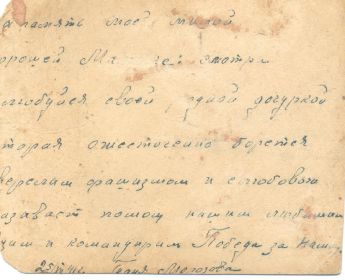 а память моей милой
орошей Ма ей смотри
любуйся своей одной дочуркой
торая ожесточенно борется
вереским фашизмом и с любовью
азывает помощ нашим любимым
цам и командирам Победа за нами
Таня Морозова